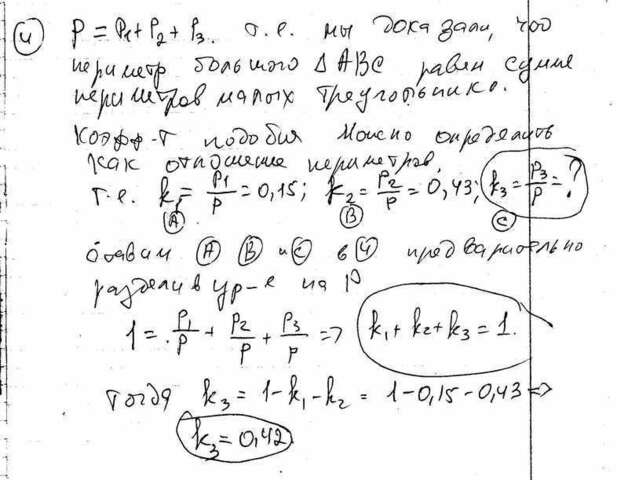 ④ P = P₁ + P₂ + P₃. т.е. мы доказали, что
периметр большого Δ ABC равен сумме
периметров малых треугольнико.
Коэфф-т подобия можно определить
как отношение периметров,
т.е. k₁ = P₁/P = 0,15; k₂ = P₂/P = 0,43; k₃ = P₃/P = ?
Ⓐ Ⓑ Ⓒ
Ⓐ Ⓑ и Ⓒ в ④ предварительно
разделив ур-е на P
1 = P₁/P + P₂/P + P₃/P => k₁ + k₂ + k₃ = 1.
тогда k₃ = 1 - k₁ - k₂ = 1 - 0,15 - 0,43 =>
k₃ = 0,42